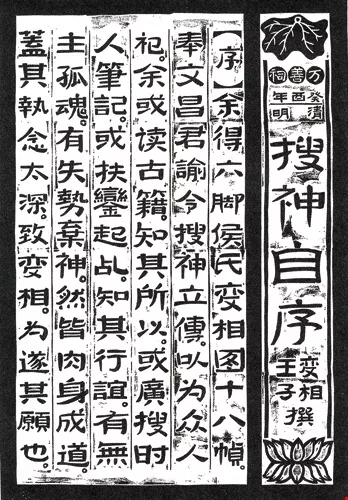 万善祠
癸酉年
清明
搜神自序
变相王子撰
【序】余得六脚侯氏变相图十八幀。
奉文昌君諭令搜神立傳。以为众人
祀。余或读古籍知其所以。或廣搜时
人筆記。或扶鸞起乩。知其行誼。有無
主孤魂。有失勢棄神。然皆肉身成道。
蓋其執念太深。致变相。为遂其願也。